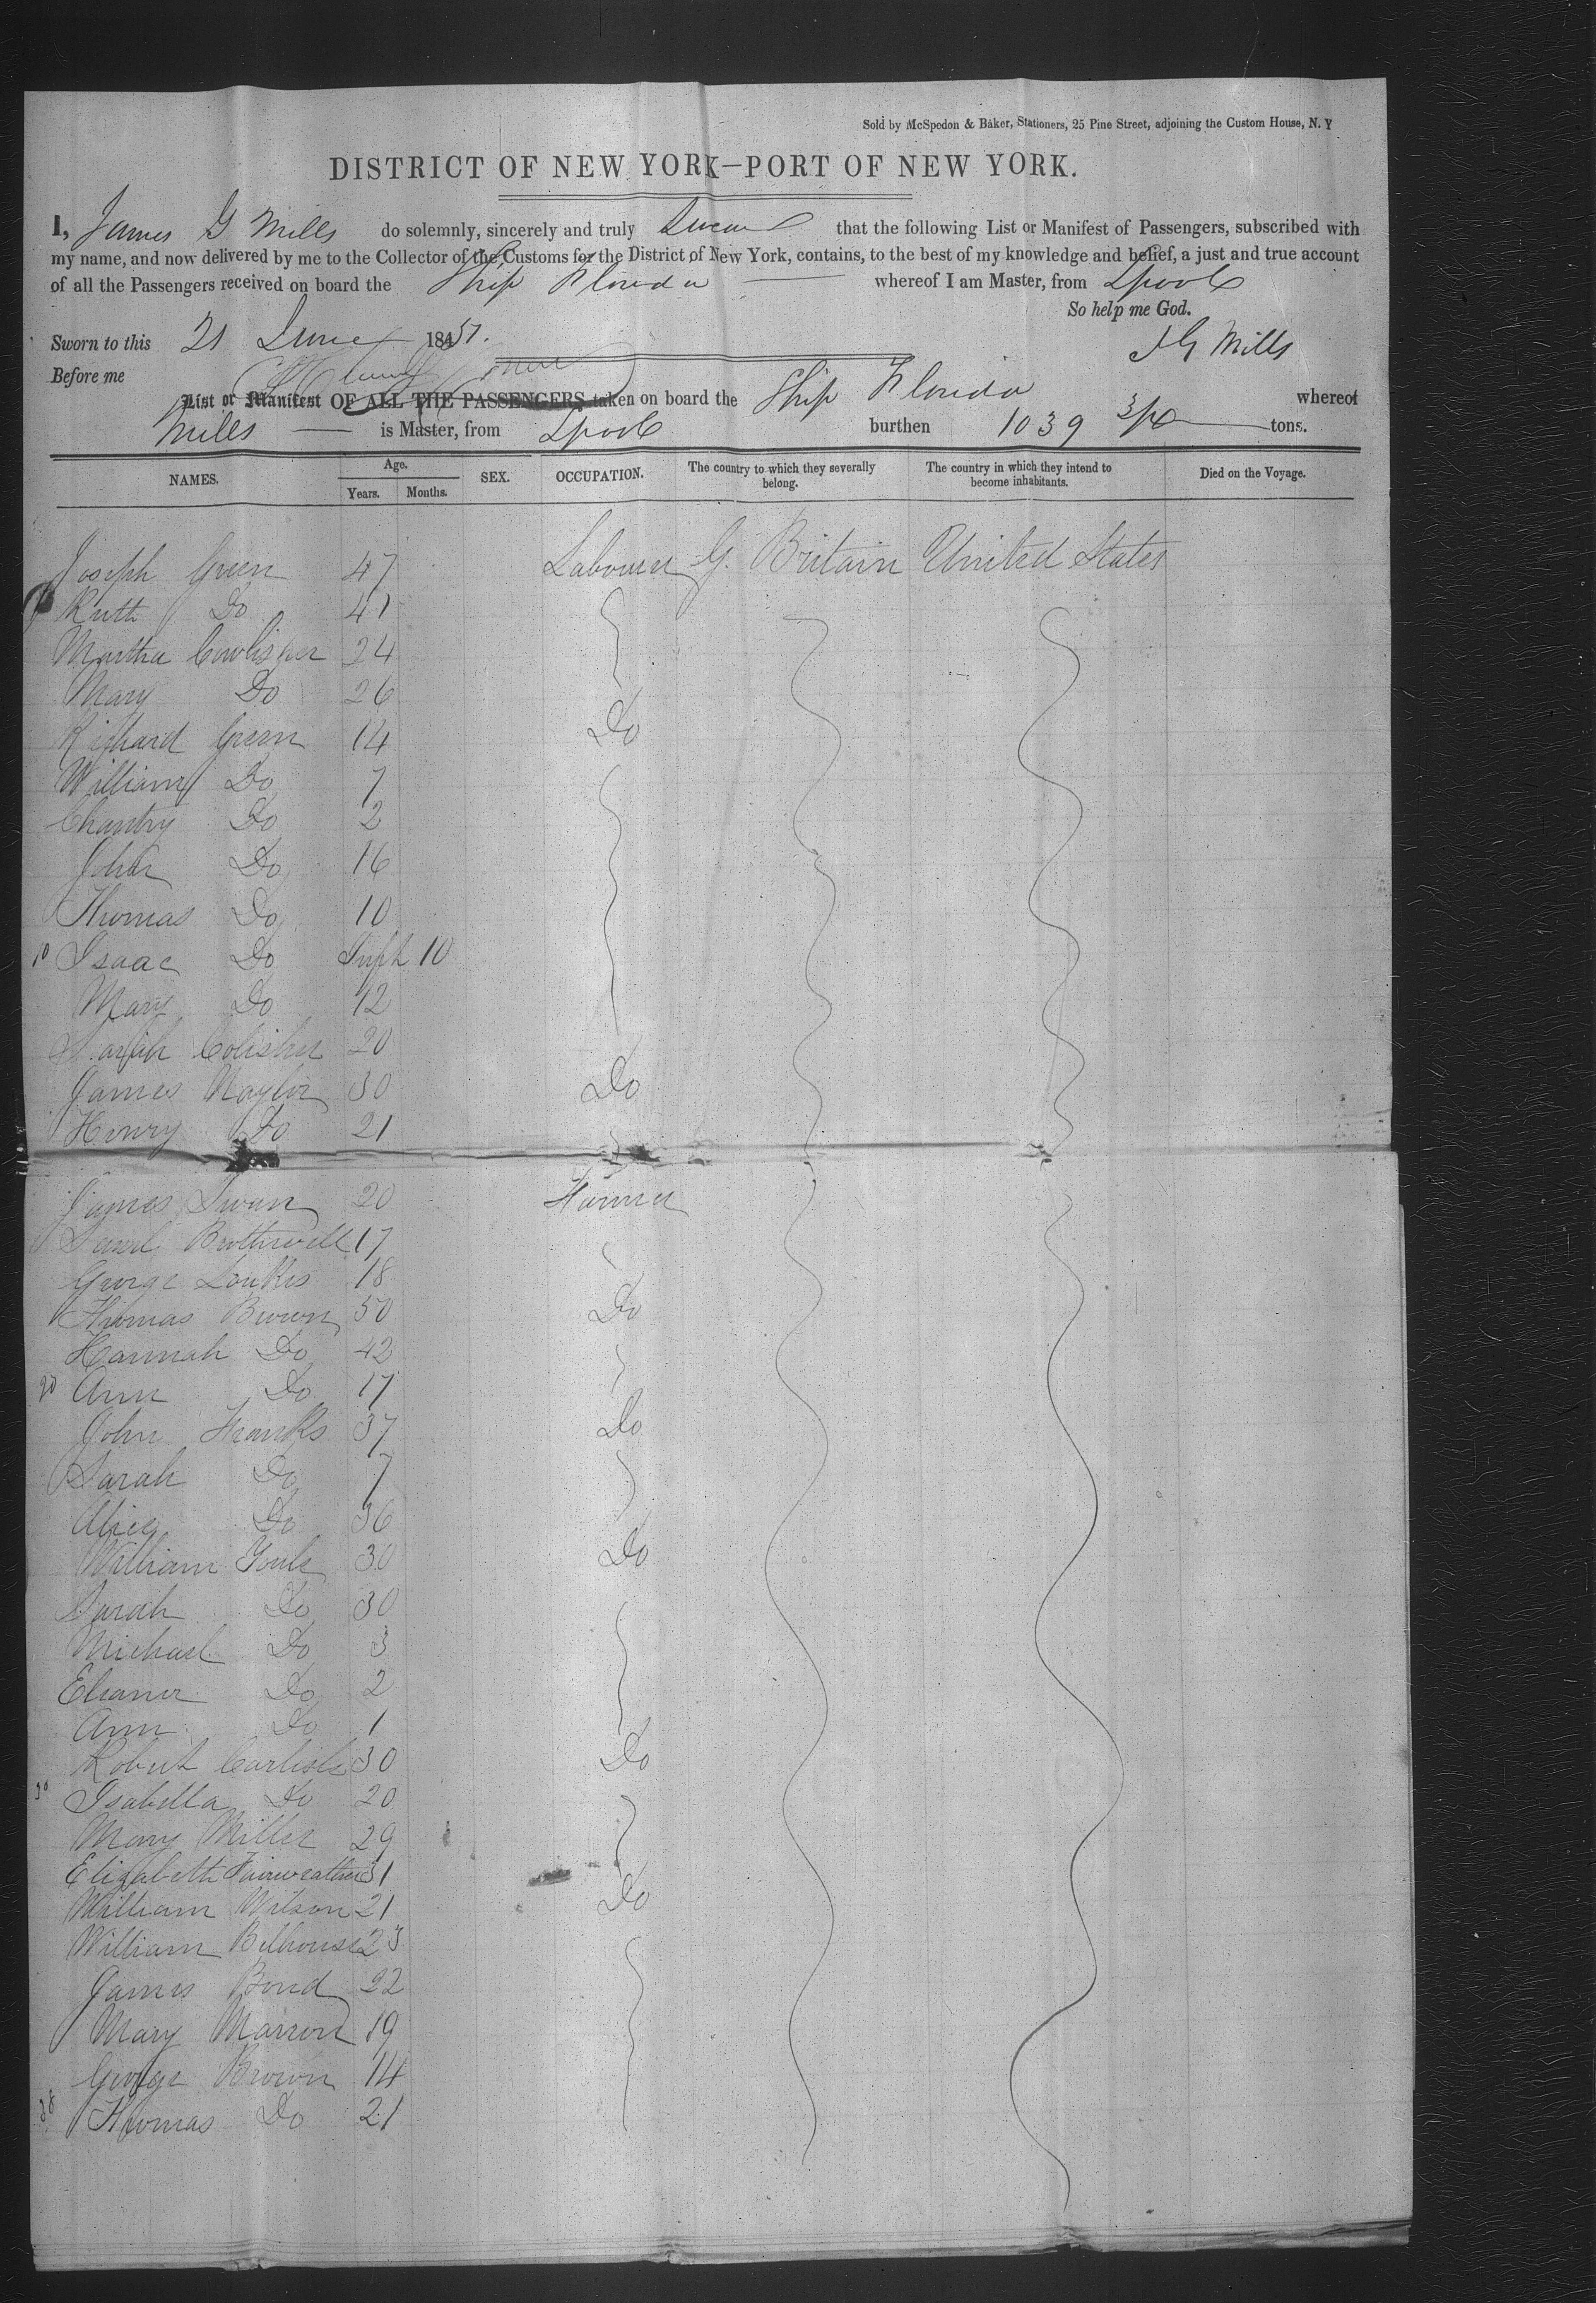 Sold by McSpedon & Baker, Stationers, 25 Pine Street, adjoining the Custom House, N. Y
DISTRICT OF NEW YORK—PORT OF NEW YORK.
I, James G Mills do solemnly, sincerely and truly Swear that the following List or Manifest of Passengers, subscribed with
my name, and now delivered by me to the Collector of the Customs for the District of New York, contains, to the best of my knowledge and belief, a just and true account
of all the Passengers received on board the Ship Florida whereof I am Master, from Lpool
So help me God.
Sworn to this 21 June 1851.
J G Mills
Before me
List or Manifest OF ALL THE PASSENGERS taken on board the Ship Florida whereof
Mills is Master, from Lpool burthen 1039 tons.
NAMES. Age. Years. Months. SEX. OCCUPATION. The country to which they severally belong. The country in which they intend to become inhabitants. Died on the Voyage.
Joseph Green 47 Labourer G. Britain United States
Ruth Do 41
Martha 24
Mary Do 26
Richard Green 14 Do
William Do 7
Do 2
John Do 16
Thomas Do 10
10 Isaac Do Inft 10
Mary Do 12
Sarah 20
James Naylor 30 Do
Henry Do 21
James Swan 20 Farmer
Brotherwell 17
George 18
Thomas Brown 50 Do
Hannah Do 42
20 Ann Do 17
John Franks 37 Do
Sarah Do 7
Alice Do 36
William 30 Do
Sarah Do 30
Michael Do 3
Eleanor Do 2
Ann Do 1
Robert Carlisle 30 Do
30 Isabella Do 20
Mary Miller 29
Elizabeth Fairweather 31
William Wilson 21 Do
William Belhouse 23
James Bond 22
Mary Marron 19
George Brown 14
38 Thomas Do 21